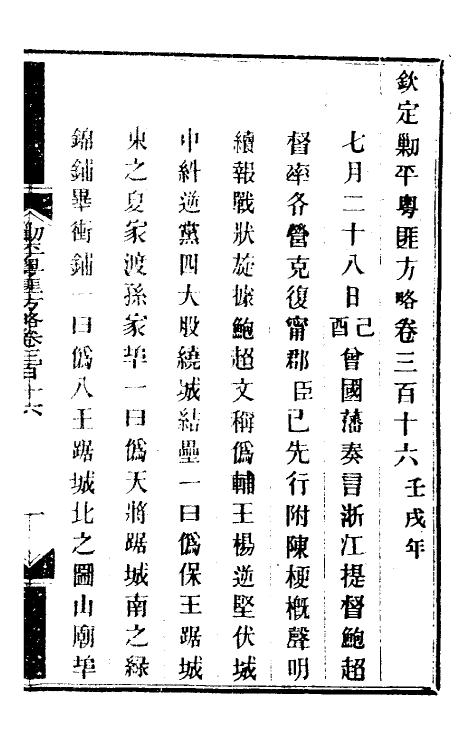 欽定勦平粵匪方略卷三百十六 壬戌年
七月二十八日己酉曾國藩奏言浙江提督鮑超
督率各營克復甯郡臣已先行附陳梗概聲明
續報戰狀旋據鮑超文稱僞輔王楊逆堅伏城
中糾逆黨四大股繞城結壘一曰僞保王踞城
東之夏家渡孫家埠一曰僞天將踞城南之綠
錦鋪畢衝鋪一曰僞八王踞城北之圖山廟埠
勦平粵匪方略卷三百十六
一